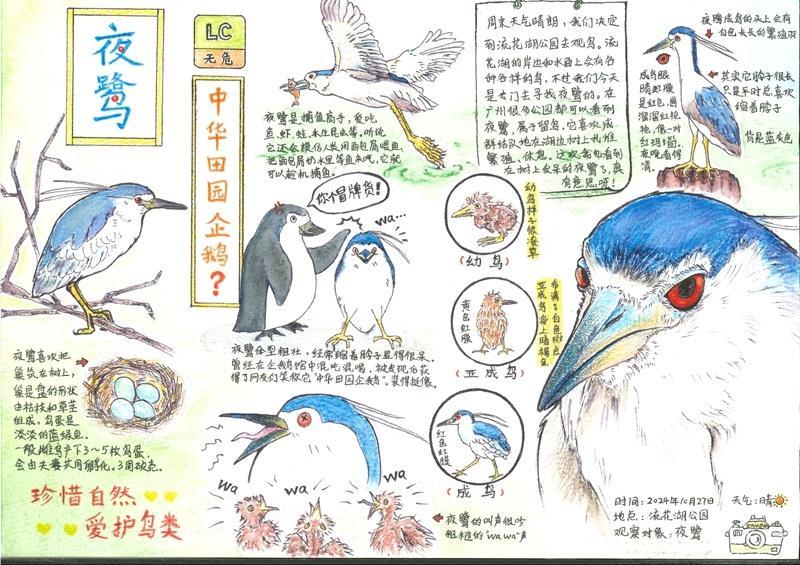 夜鹭
LC
无危
中华田园企鹅?
夜鹭是捕鱼高手,爱吃
鱼、虾、蛙、水生昆虫等。听说
它还会模仿人类用面包屑喂鱼,
把面包屑扔水里等鱼来吃,它就
可以趁机捕鱼。
周末天气晴朗,我们决定
到流花湖公园去观鸟。流
花湖的岸边和水面上会有各
种各样的鸟,不过我们今天
是专门去寻找夜鹭的。在
广州很多公园都可以看到
夜鹭,属于留鸟,它喜欢成
群结队地在湖边树上扎堆
繁殖、休息。这次我也看到
在树上发呆的夜鹭了,真
有意思呀!
夜鹭成鸟的头上会有
白色长长的繁殖羽
成鸟眼
睛虹膜
是红色,圆
溜溜红艳
艳,像一对
红玛瑙。
夜晚看得
清。
其实它脖子很长
只是平时总喜欢
缩着脖子
背是蓝灰色
你冒牌货!
wa...
夜鹭体型粗壮,经常缩着脖子显得很呆,
曾经在企鹅馆中混吃混喝,被发现后获
得了网友们笑称它"中华田园企鹅"。装得挺像。
幼鸟样子很潦草
(幼鸟)
黄色虹膜
布满了白色斑点
亚成鸟身上暗褐色
(亚成鸟)
红色虹膜
(成鸟)
夜鹭喜欢把
巢筑在树上,
巢是盘的形状
由枯枝和草茎
组成。鸟蛋是
淡淡的蓝绿色。
一般雌鸟产下3~5枚鸟蛋,
会由夫妻共同孵化。3周破壳。
珍惜自然
爱护鸟类
wa
wa
wa
夜鹭的叫声很吵
粗糙的"wa wa"声
时间:2024年10月27日 天气:晴
地点:流花湖公园
观察对象:夜鹭